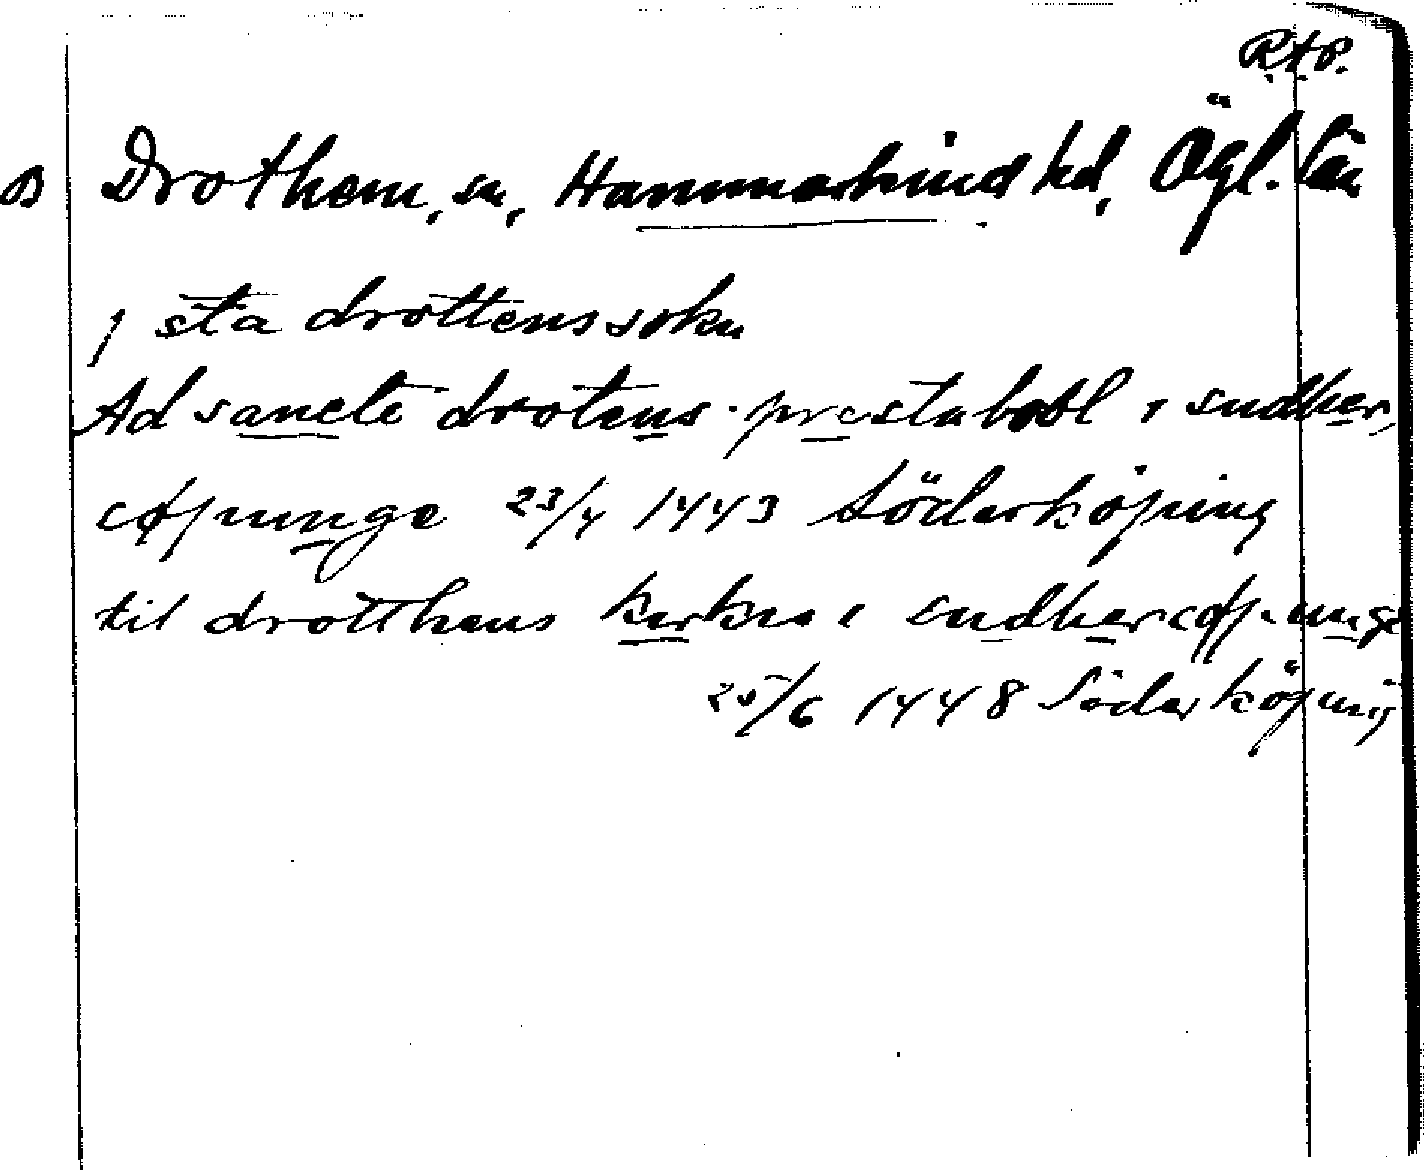 R.A.P.
B Drothem, sn, Hammarkinds hd, Ögl. län
j sta drottens sokn
Ad sancte drotens prestabol i sudher,
cøpunge 23/4 1443 Söderköping
til drotthens kirkio i sudhercøpunge
25/6 1448 Söderköping